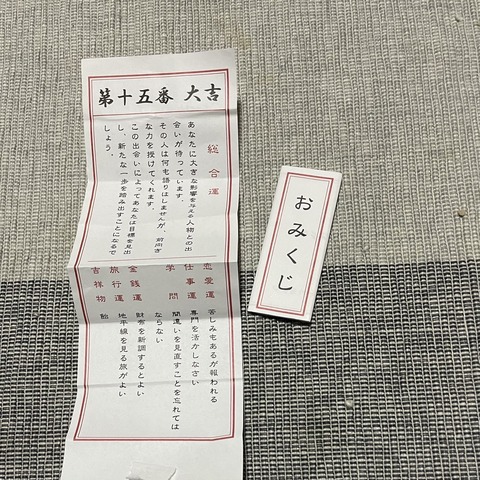 第十五番 大吉
総合運
あなたに大きな影響を与える人物との出
会いが待っています。
その人は何も語りはしませんが、前向き
な力を授けてくれます。
この出会いによってあなたは目標を見出
し、新たな一歩を踏み出すことになるで
しょう。
恋愛運 苦しみもあるが報われる
仕事運 専門を活かしなさい
学問 間違いを見直すことを忘れては
ならない
金銭運 財布を新調するとよい
旅行運 地平線を見る旅がよい
吉祥物 飴
おみくじ